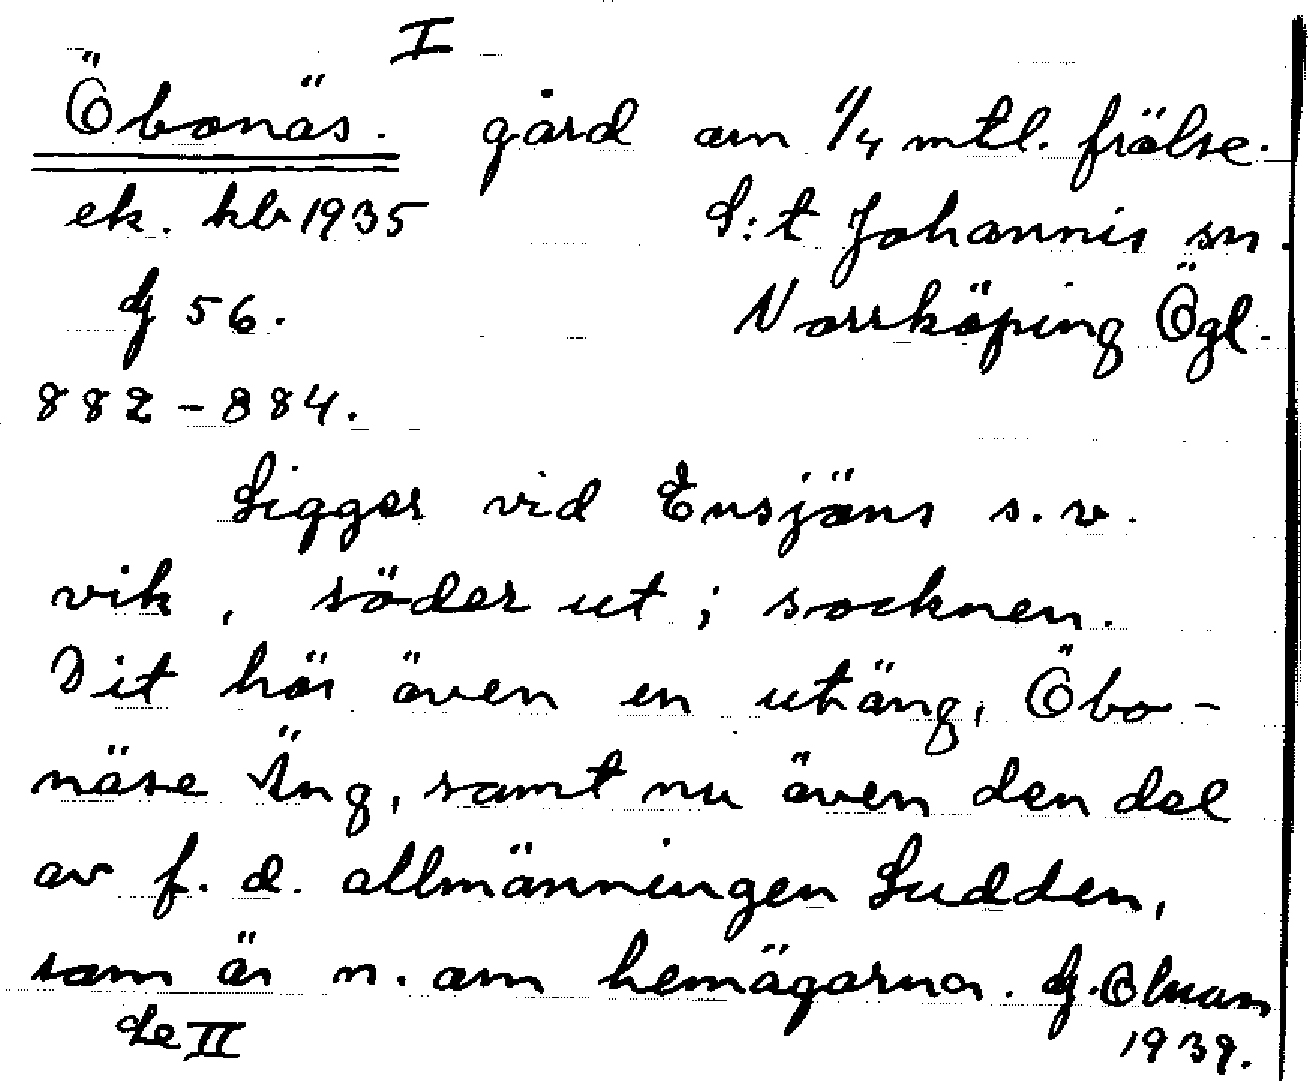 I
Öbonäs. gård om 1/4 mtl. frälse.
ek. kb 1935 S:t Johannis sn.
G 56. Norrköping Ögl.
882-884.
Ligger vid Ensjöns s.v.
vik, söder ut i socknen.
Dit hör även en utäng, Öbo-
näse Äng, samt nu även den del
av f. d. allmänningen Ludden,
som är n. om hemägorna. G.
1939.
Se II